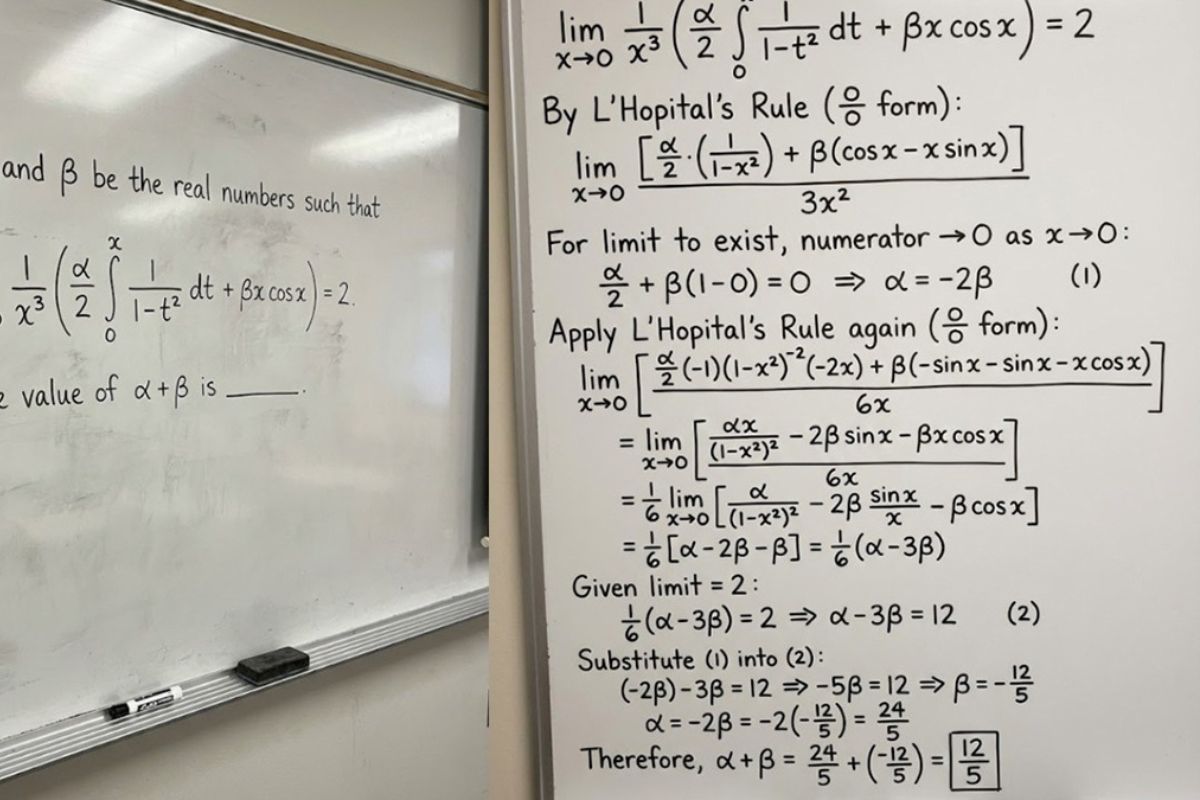 and β be the real numbers such that
1/x³ (α/2 ∫₀ˣ 1/(1-t²) dt + βx cos x) = 2.
value of α+β is ______.
lim x→0 1/x³ (α/2 ∫₀ 1/(1-t²) dt + βx cos x) = 2
By L'Hopital's Rule (0/0 form):
lim x→0 [α/2·(1/(1-x²)) + β(cos x - x sin x)] / 3x²
For limit to exist, numerator →0 as x→0:
α/2 + β(1-0) = 0 ⇒ α = -2β (1)
Apply L'Hopital's Rule again (0/0 form):
lim x→0 [(α/2 (-1)(1-x²)⁻²(-2x) + β(-sin x - sin x - x cos x)) / 6x]
= lim x→0 [(αx/(1-x²)² - 2β sin x - βx cos x) / 6x]
= 1/6 lim x→0 [α/(1-x²)² - 2β sin x/x - β cos x]
= 1/6 [α-2β-β] = 1/6 (α-3β)
Given limit = 2:
1/6 (α-3β) = 2 ⇒ α-3β = 12 (2)
Substitute (1) into (2):
(-2β)-3β = 12 ⇒ -5β = 12 ⇒ β = -12/5
α = -2β = -2(-12/5) = 24/5
Therefore, α+β = 24/5 + (-12/5) = 12/5